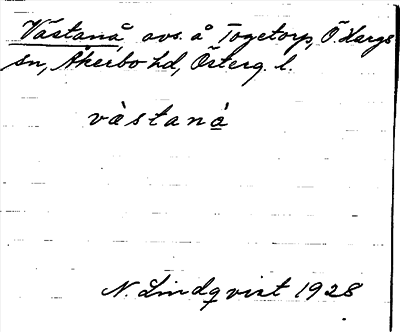 Västanå avs. å Togetorp, Ö. Hargs
sn, Åkerbo hd, Österg. l.
vàstanȧ
N. Lindqvist 1928